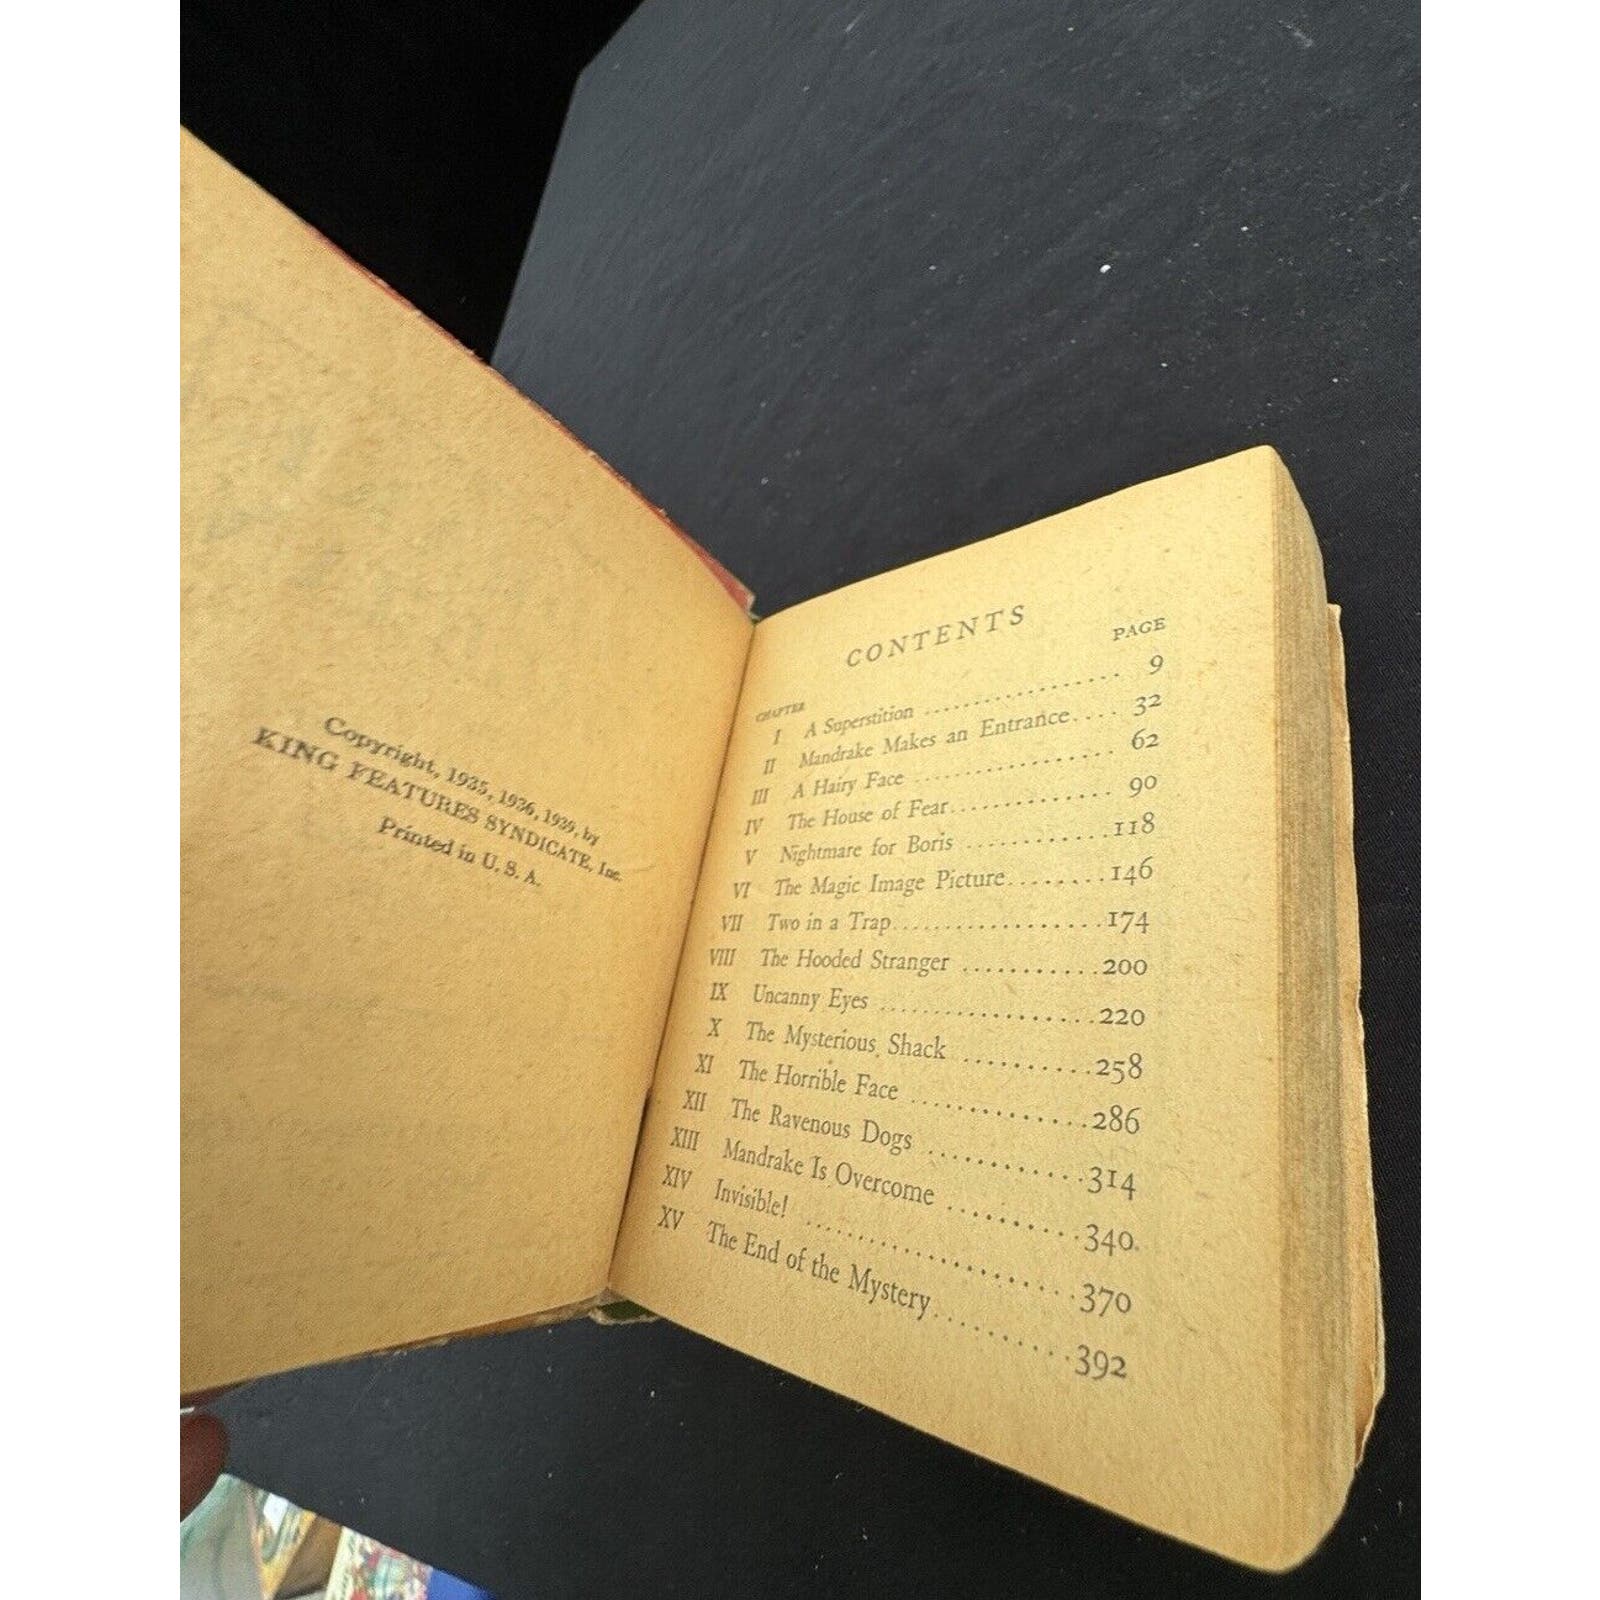 Copyright, 1935, 1936, 1939, by
KING FEATURES SYNDICATE, Inc.
Printed in U. S. A.
CONTENTS
CHAPTER PAGE
I A Superstition .................... 9
II Mandrake Makes an Entrance.... 32
III A Hairy Face .................... 62
IV The House of Fear............. 90
V Nightmare for Boris ............118
VI The Magic Image Picture........146
VII Two in a Trap..................174
VIII The Hooded Stranger ...........200
IX Uncanny Eyes ..................220
X The Mysterious Shack ..........258
XI The Horrible Face ..............286
XII The Ravenous Dogs ............314
XIII Mandrake Is Overcome ..........340
XIV Invisible! ......................370
XV The End of the Mystery...........392